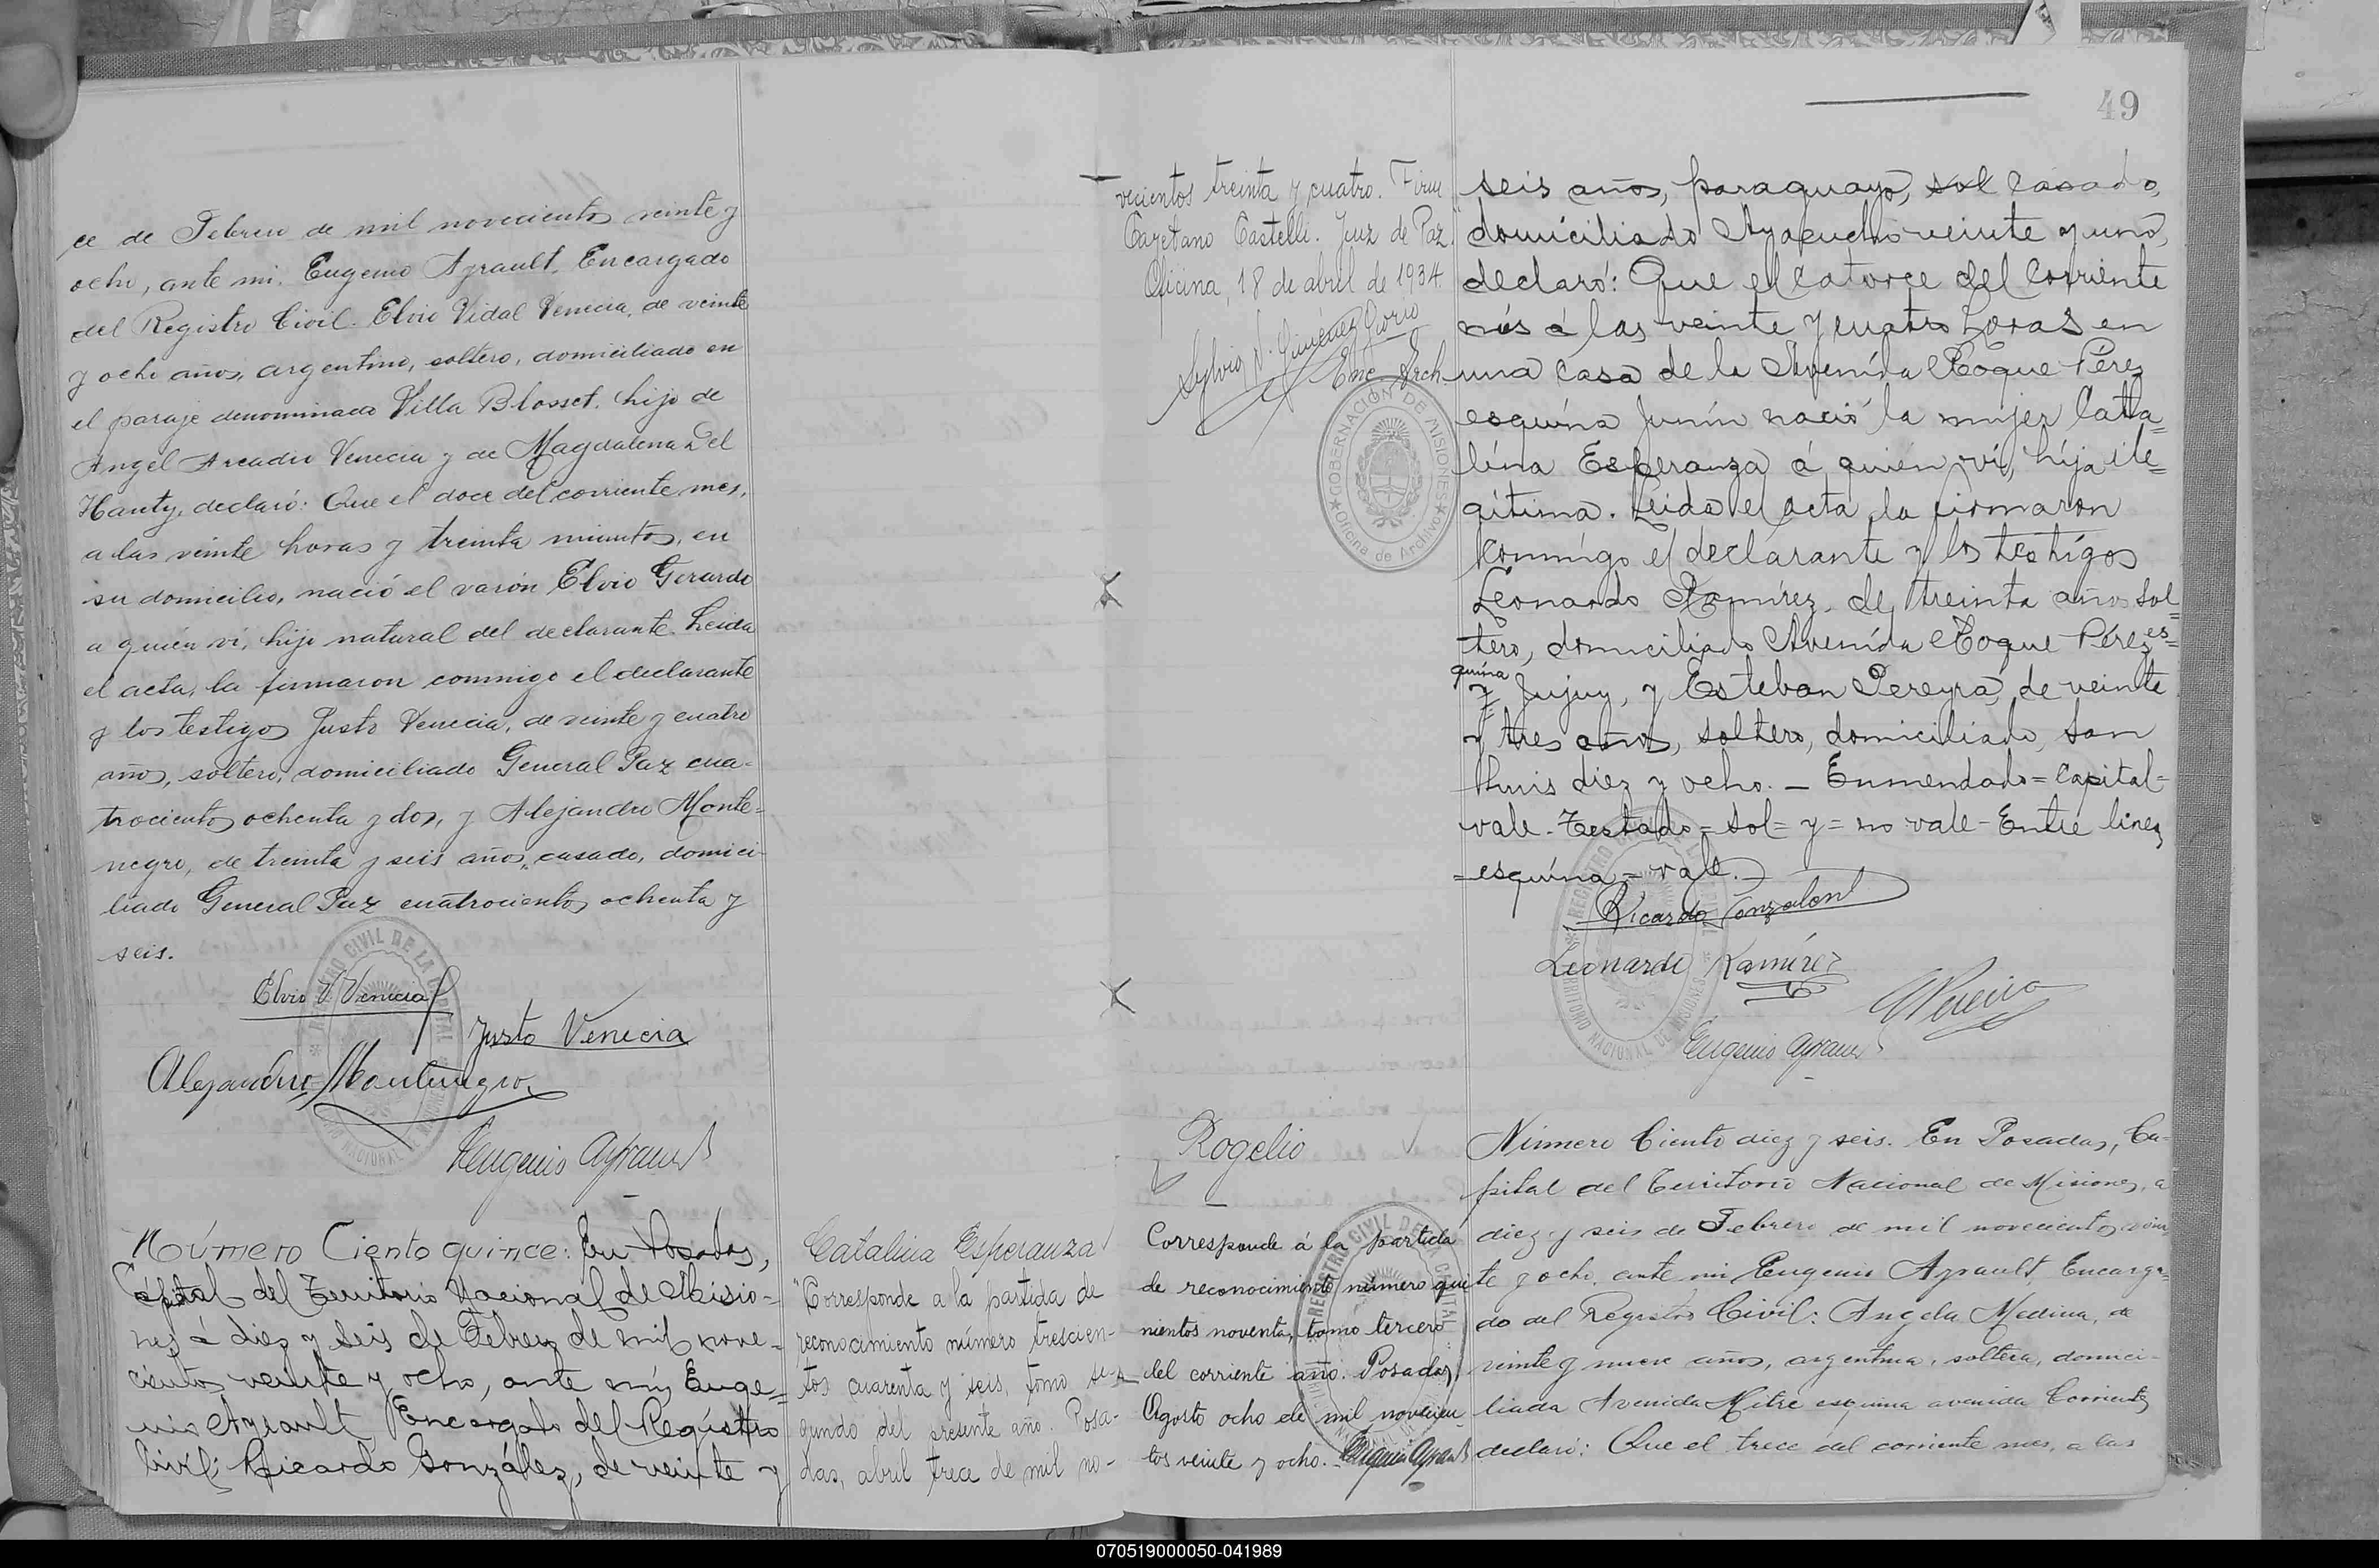 ce de Febrero de mil novecientos veinte y
ocho, ante mi, Eugenio Ayrault, Encargado
del Registro Civil. Elvio Vidal Venecia, de veinte
y ocho años, argentino, soltero, domiciliado en
el paraje denominado Villa Blosset, hijo de
Angel Arcadio Venecia y de Magdalena Del
Hanty, declaró: Que el doce del corriente mes,
a las veinte horas y treinta minutos, en
su domicilio, nació el varón Elvio Gerardo
a quién vi, hijo natural del declarante. Leida
el acta, la firmaron conmigo el declarante
y los testigos Justo Venecia, de veinte y cuatro
años, soltero, domiciliado General Paz cua-
trocientos ochenta y dos, y Alejandro Monte=
negro, de treinta y seis años, casado, domici-
liado General Paz cuatrocientos ochenta y
seis.
Elvio V. Venecia
Justo Venecia
Alejandro Montenegro
Eugenio Ayrault
Número Ciento quince: En Posadas,
Capital del Territorio Nacional de Misio=
nes á diez y seis de Febrero de mil nove-
cientos veinte y ocho, ante mí, Euge=
nio Ayrault Encargado del Registro
Civil: Ricardo González, de veinte y
Catalina Esperanza
"Corresponde a la partida de
reconocimiento número trescien-
tos cuarenta y seis, tomo se-
gundo del presente año. Posa-
das, abril trece de mil no-
49
vecientos treinta y cuatro. Firm
Cayetano Castelli. Juez de Paz."
Oficina, 18 de abril de 1934.
Sylvio
Enc. Arch
GOBERNACIÓN DE MISIONES
Oficina de Archivo
seis años, paraguayo, sol casado,
domiciliado Ayacucho veinte y uno,
declaró: Que el catorce del corriente
mes á las veinte y cuatro horas en
una casa de la Avenída Roque Pérez
esquína Junín nació la mujer Cata=
lína Esperanza á quien ví, híja ile=
gítima. Leida el acta la firmaron
conmígo el declarante y los testígos
Leonardo Ramírez, de treinta años sol=
tero, domiciliado Avenída Roque Pérez es=
quína
y Jujuy, y Esteban Pereyra, de veinte
y tres años, soltero, domiciliado, San
Luis diez y ocho. — Enmendado = Capital =
vale - Testado = sol = y = no vale - Entre lineas
= esquína = vale.
Ricardo Gonzalez
Leonardo Ramírez
EPereira
Eugenio Ayrault
REGISTRO CIVIL DE LA CAPITAL
TERRITORIO NACIONAL DE MISIONES
Rogelio
Corresponde á la partida
de reconocimiento número qui
nientos noventa, tomo tercero
del corriente año. Posadas,
Agosto ocho de mil novecien
tos veinte y ocho. Eugenio Ayrault
Número Ciento diez y seis. En Posadas, Ca-
pital del Territorio Nacional de Misiones, a
diez y seis de Febrero de mil novecientos vein
te y ocho, ante mi Eugenio Ayrault, Encarga=
do del Registro Civil: Angela Medina, de
veinte y nueve años, argentina, soltera, domici-
liada Avenida Mitre esquina avenida Corrientes
declaró: Que el trece del corriente mes, a las
070519000050-041989